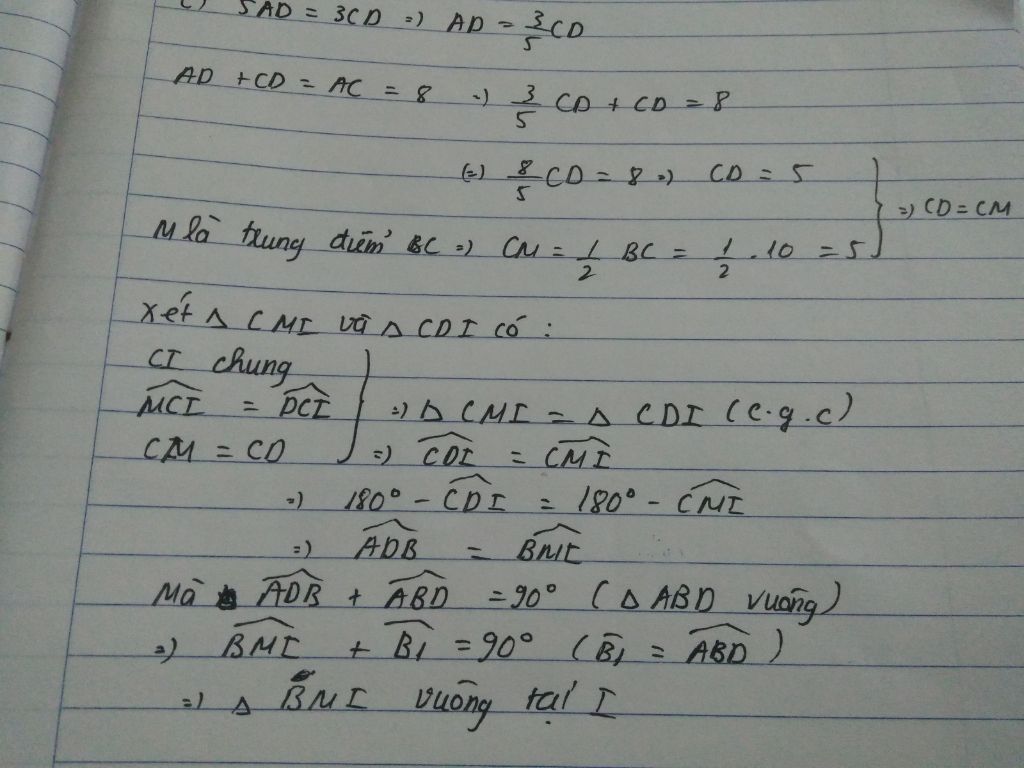 c) 5AD = 3CD => AD = 3/5 CD
AD + CD = AC = 8 => 3/5 CD + CD = 8
(=) 8/5 CD = 8 => CD = 5
=> CD = CM
M là trung điểm BC => CM = 1/2 BC = 1/2 . 10 = 5
Xét Δ CMI và Δ CDI có :
CI chung
MCI = DCI => Δ CMI = Δ CDI (c.g.c)
CM = CD => CDI = CMI
=> 180° - CDI = 180° - CMI
=> ADB = BMI
Mà ADB + ABD = 90° (Δ ABD vuông)
=> BMI + B1 = 90° (B1 = ABD)
=> Δ BMI vuông tại I